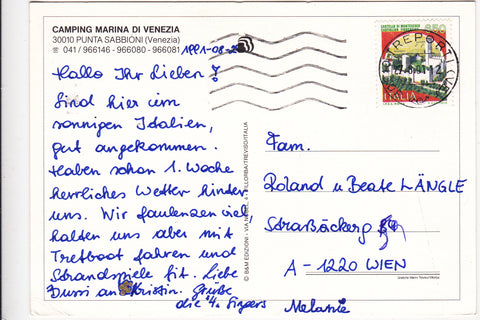 CAMPING MARINA DI VENEZIA
30010 PUNTA SABBIONI (Venezia)
☎ 041 / 966146 - 966080 - 966081
1991-08-2
Hallo Ihr Lieben!
Sind hier im
sonnigen Italien,
gut angekommen.
Haben schon 1. Woche
herrliches Wetter hinter
uns. Wir faulenzen viel,
halten uns aber mit
Tretboot fahren und
Strandspiele fit. Liebe
Bussi an Kristin. Grüße
die 4. Melanie
© B&M EDIZIONI - VIA
TREVISO/ITALIA
850
ITALIA
Fam.
Roland u Beate LÄNGLE
Straßäckerg
A - 1220 WIEN